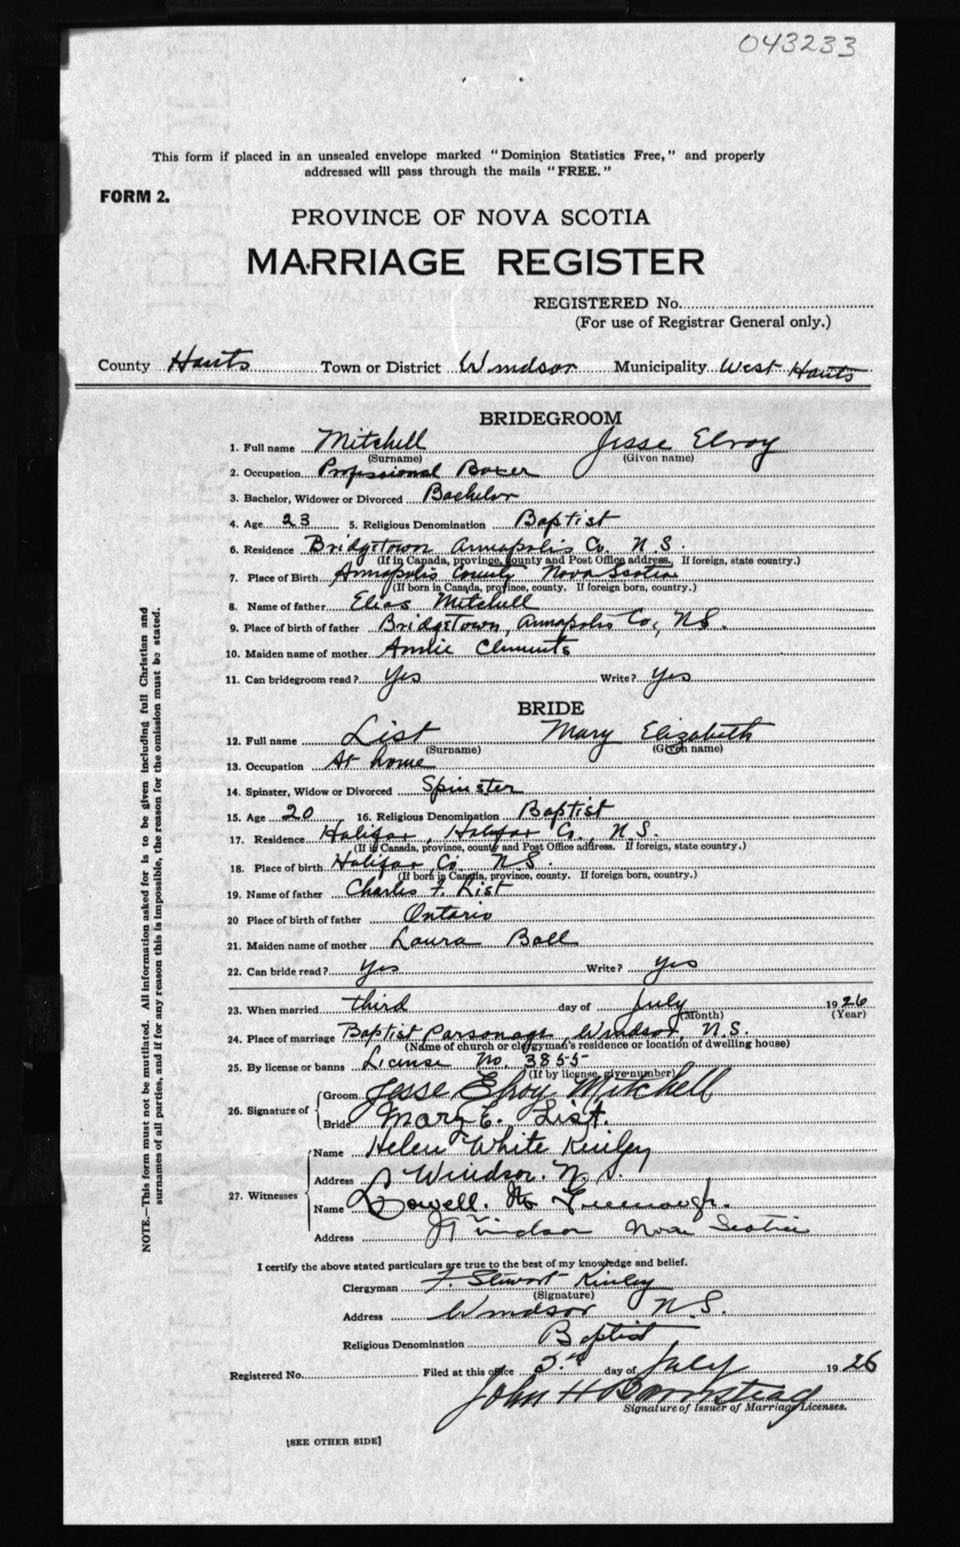 043233
This form if placed in an unsealed envelope marked "Dominion Statistics Free," and properly
addressed will pass through the mails "FREE."
FORM 2.
PROVINCE OF NOVA SCOTIA
MARRIAGE REGISTER
REGISTERED No.
(For use of Registrar General only.)
County Hants Town or District Windsor Municipality West Hants
BRIDEGROOM
1. Full name Mitchell Jesse Elroy
(Surname) (Given name)
2. Occupation Professional Boxer
3. Bachelor, Widower or Divorced Bachelor
4. Age 23 5. Religious Denomination Baptist
6. Residence Bridgetown Annapolis Co. N.S.
(If in Canada, province, county and Post Office address. If foreign, state country.)
7. Place of Birth Annapolis County Nova Scotia
(If born in Canada, province, county. If foreign born, country.)
8. Name of father Elias Mitchell
9. Place of birth of father Bridgetown, Annapolis Co., N.S.
10. Maiden name of mother Clements
11. Can bridegroom read? Yes Write? Yes
BRIDE
12. Full name List Mary Elizabeth
(Surname) (Given name)
13. Occupation At home
14. Spinster, Widow or Divorced Spinster
15. Age 20 16. Religious Denomination Baptist
17. Residence Halifax, Halifax Co., N.S.
(If in Canada, province, county and Post Office address. If foreign, state country.)
18. Place of birth Halifax Co. N.S.
(If born in Canada, province, county. If foreign born, country.)
19. Name of father Charles F. List
20 Place of birth of father Ontario
21. Maiden name of mother Laura Ball
22. Can bride read? Yes Write? Yes
23. When married third day of July 1926
(Month) (Year)
24. Place of marriage Baptist Parsonage, Windsor, N.S.
(Name of church or clergyman's residence or location of dwelling house)
25. By license or banns License No. 3855
(If by license, give number)
26. Signature of Groom Jesse Elroy Mitchell
Bride Mary E. List.
27. Witnesses Name Helen White Kinley
Address Windsor. N.S.
Name Lowell. Greenough.
Address Windsor Nova Scotia
I certify the above stated particulars are true to the best of my knowledge and belief.
Clergyman F. Stewart Kinley
(Signature)
Address Windsor N.S.
Religious Denomination Baptist
Registered No. Filed at this office 5th day of July 1926
John H Barnstead
Signature of Issuer of Marriage Licenses.
[SEE OTHER SIDE]
NOTE.—This form must not be mutilated. All information asked for is to be given including full Christian and
surnames of all parties, and if for any reason this is impossible, the reason for the omission must be stated.